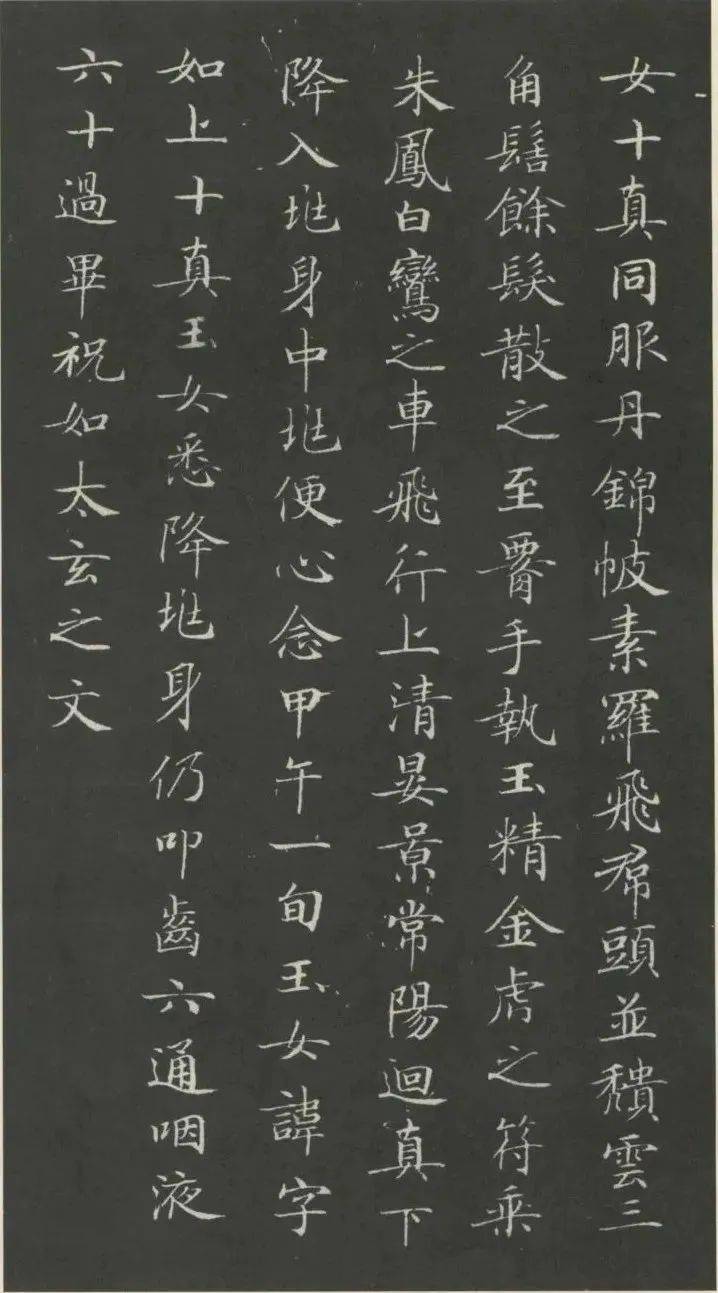 女十真同服丹錦帔素羅飛帬頭並穨雲三
角髻餘髮散之至𦝫手執玉精金虎之符乘
朱鳳白鸞之車飛行上清晏景常陽迴真下
降入𡉻身中𡉻便心念甲午一旬玉女諱字
如上十真玉女悉降𡉻身仍叩齒六通咽液
六十過畢祝如太玄之文